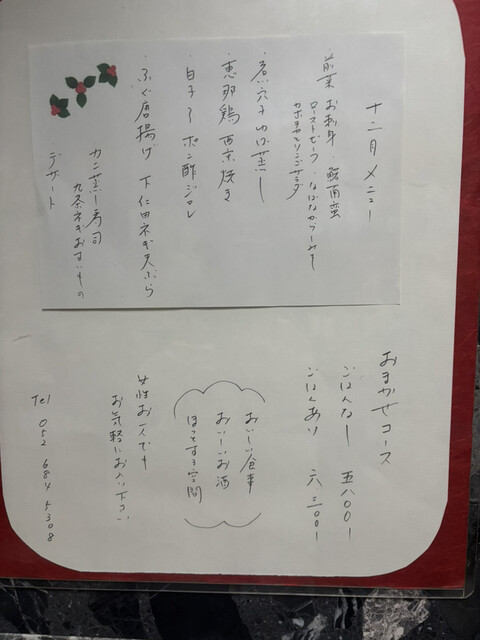 十二月メニュー
・前菜 お刺身・鮟肝蛍
ローストビーフ・なばなからしみそ
カボチャとリンゴサラダ
・煮穴子ゆば蒸し
・恵那鶏西京焼き
・白子のポン酢ジュレ
・ふぐ唐揚げ 下仁田ネギ天ぷら
カニ蒸し寿司
九条ネギおすいもの
デザート
おまかせコース
ごはんなし 五八〇〇ー
ごはんあり 六三〇〇ー
おいしい食事
おいしいお酒
ほっとする空間
女性お一人でも
お気軽にお入り下さい
Tel 052 684 5308